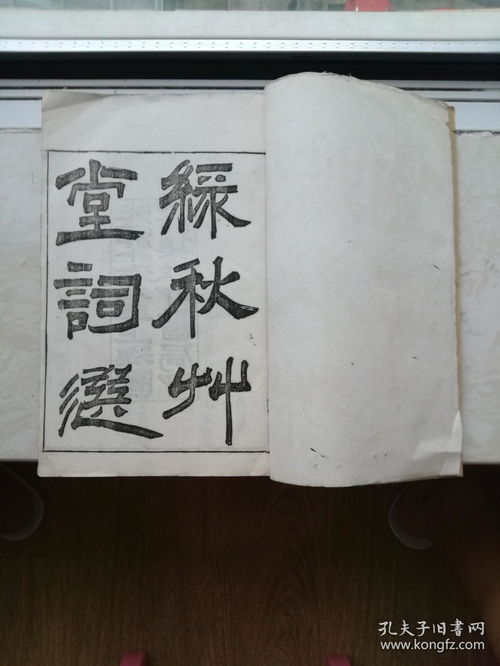 綠秋艸
堂詞選
孔夫子旧书网
www.kongfz.com